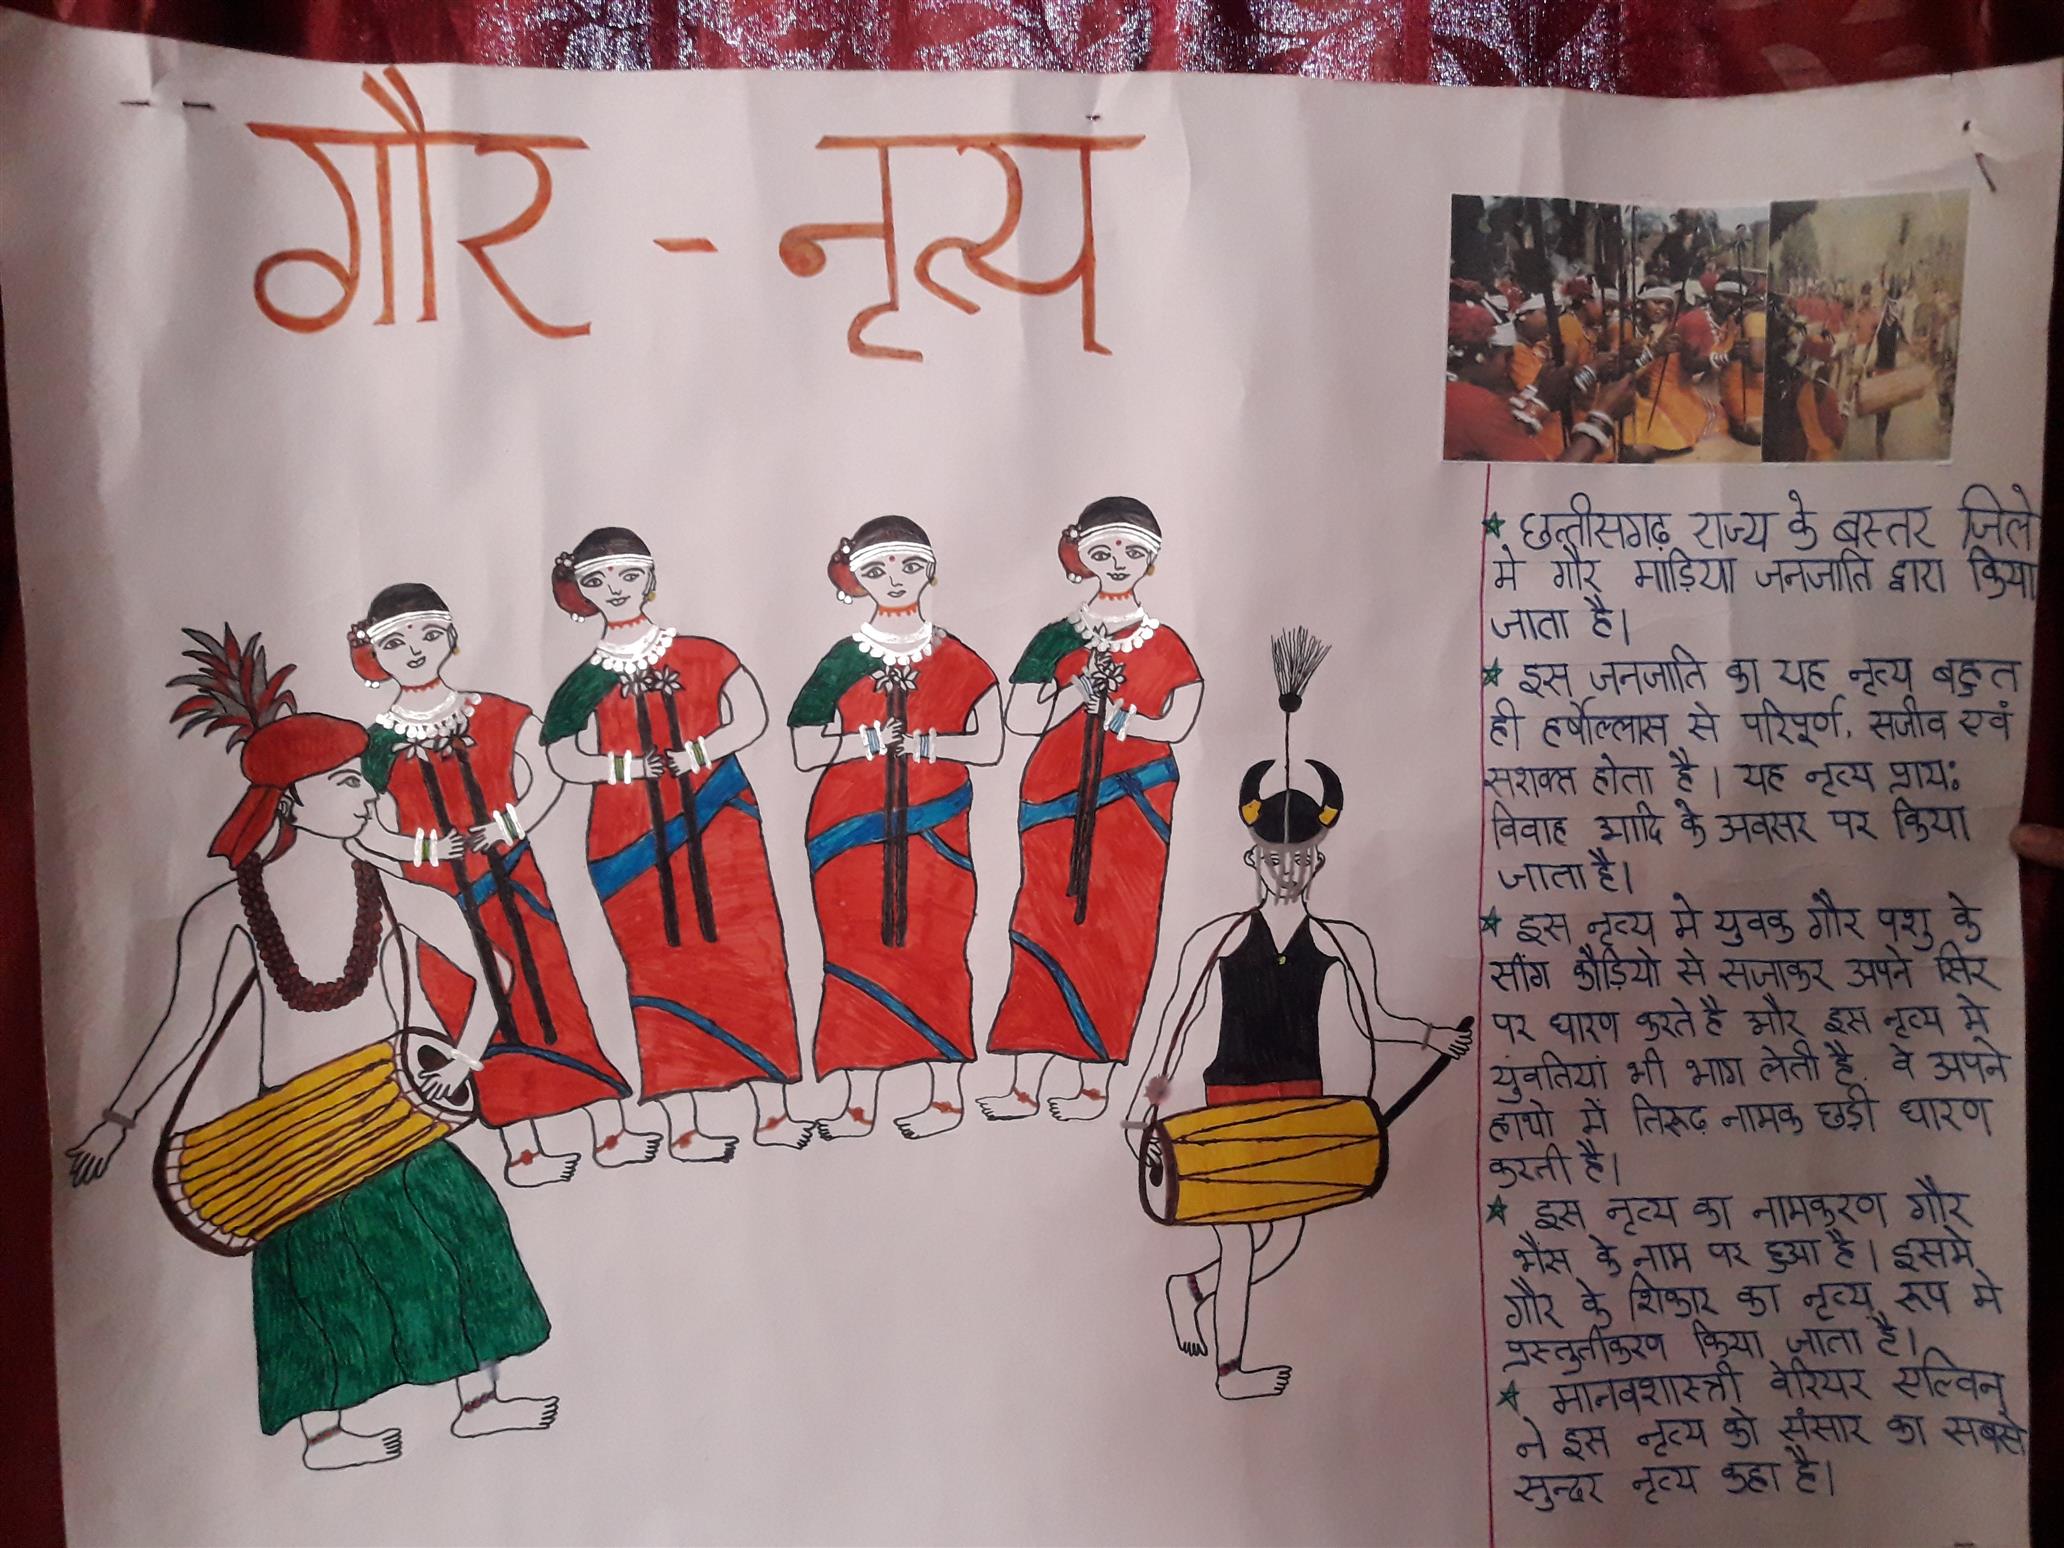 गौर - नृत्य
छत्तीसगढ़ राज्य के बस्तर जिले
मे गौर माड़िया जनजाति द्वारा किया
जाता है।
इस जनजाति का यह नृत्य बहुत
ही हर्षोल्लास से परिपूर्ण, सजीव एवं
सशक्त होता है। यह नृत्य प्राय:
विवाह आदि के अवसर पर किया
जाता है।
इस नृत्य मे युवक गौर पशु के
सींग कौड़ियो से सजाकर अपने सिर
पर धारण करते है और इस नृत्य मे
युवतियां भी भाग लेती है, वे अपने
हाथो में तिरूढ़ नामक छड़ी धारण
करती है।
इस नृत्य का नामकरण गौर
भैंस के नाम पर हुआ है। इसमे
गौर के शिकार का नृत्य रूप मे
प्रस्तुतीकरण किया जाता है।
मानवशास्त्री वेरियर एल्विन
ने इस नृत्य को संसार का सबसे
सुन्दर नृत्य कहा है।